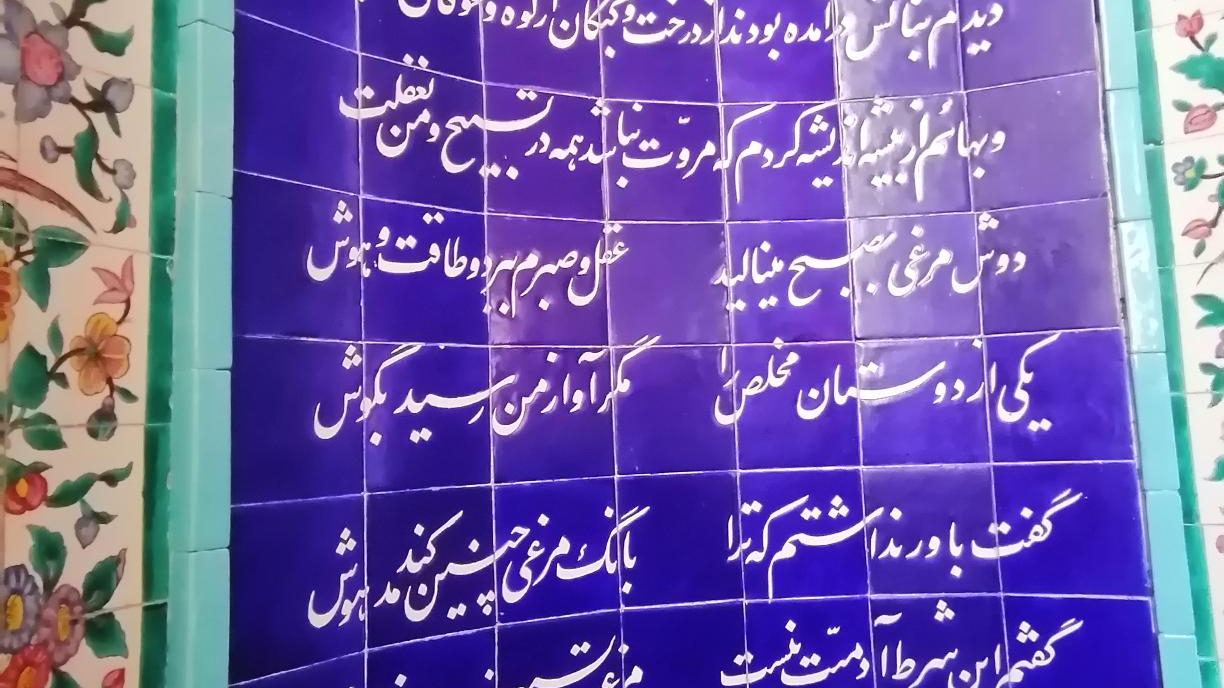 دیدم بنالش درآمده بودند از درخت و کبکان از کوه و غوکان
و بهائم از بیشه اندیشه کردم که مروّت نباشد همه در تسبیح و من بغفلت
دوش مرغی بصبح مینالید عقل و صبرم ببرد و طاقت و هوش
یکی از دوستان مخلص را مگر آواز من رسید بگوش
گفت باور نداشتم که ترا بانگ مرغی چنین کند مدهوش
گفتم این شرط آدمیّت نیست مرغ تسبیح